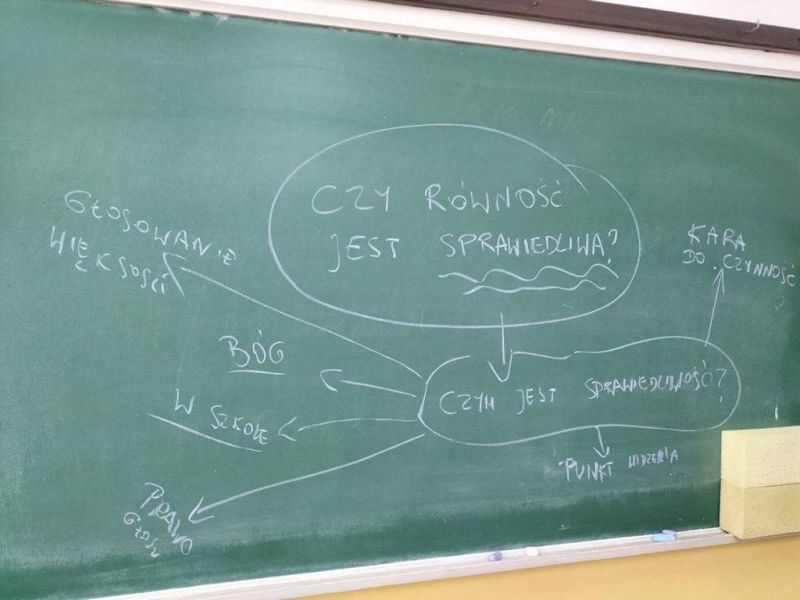 CZY RÓWNOŚĆ
JEST SPRAWIEDLIWA?
GŁOSOWANIE
WIĘKSOŚCI
KARA
DO CZYNNOŚĆ
BÓG
CZYM JEST SPRAWIEDLIWOŚĆ?
W SZKOLE
PUNKT WIDZENIA
PRAWO
GŁOSU